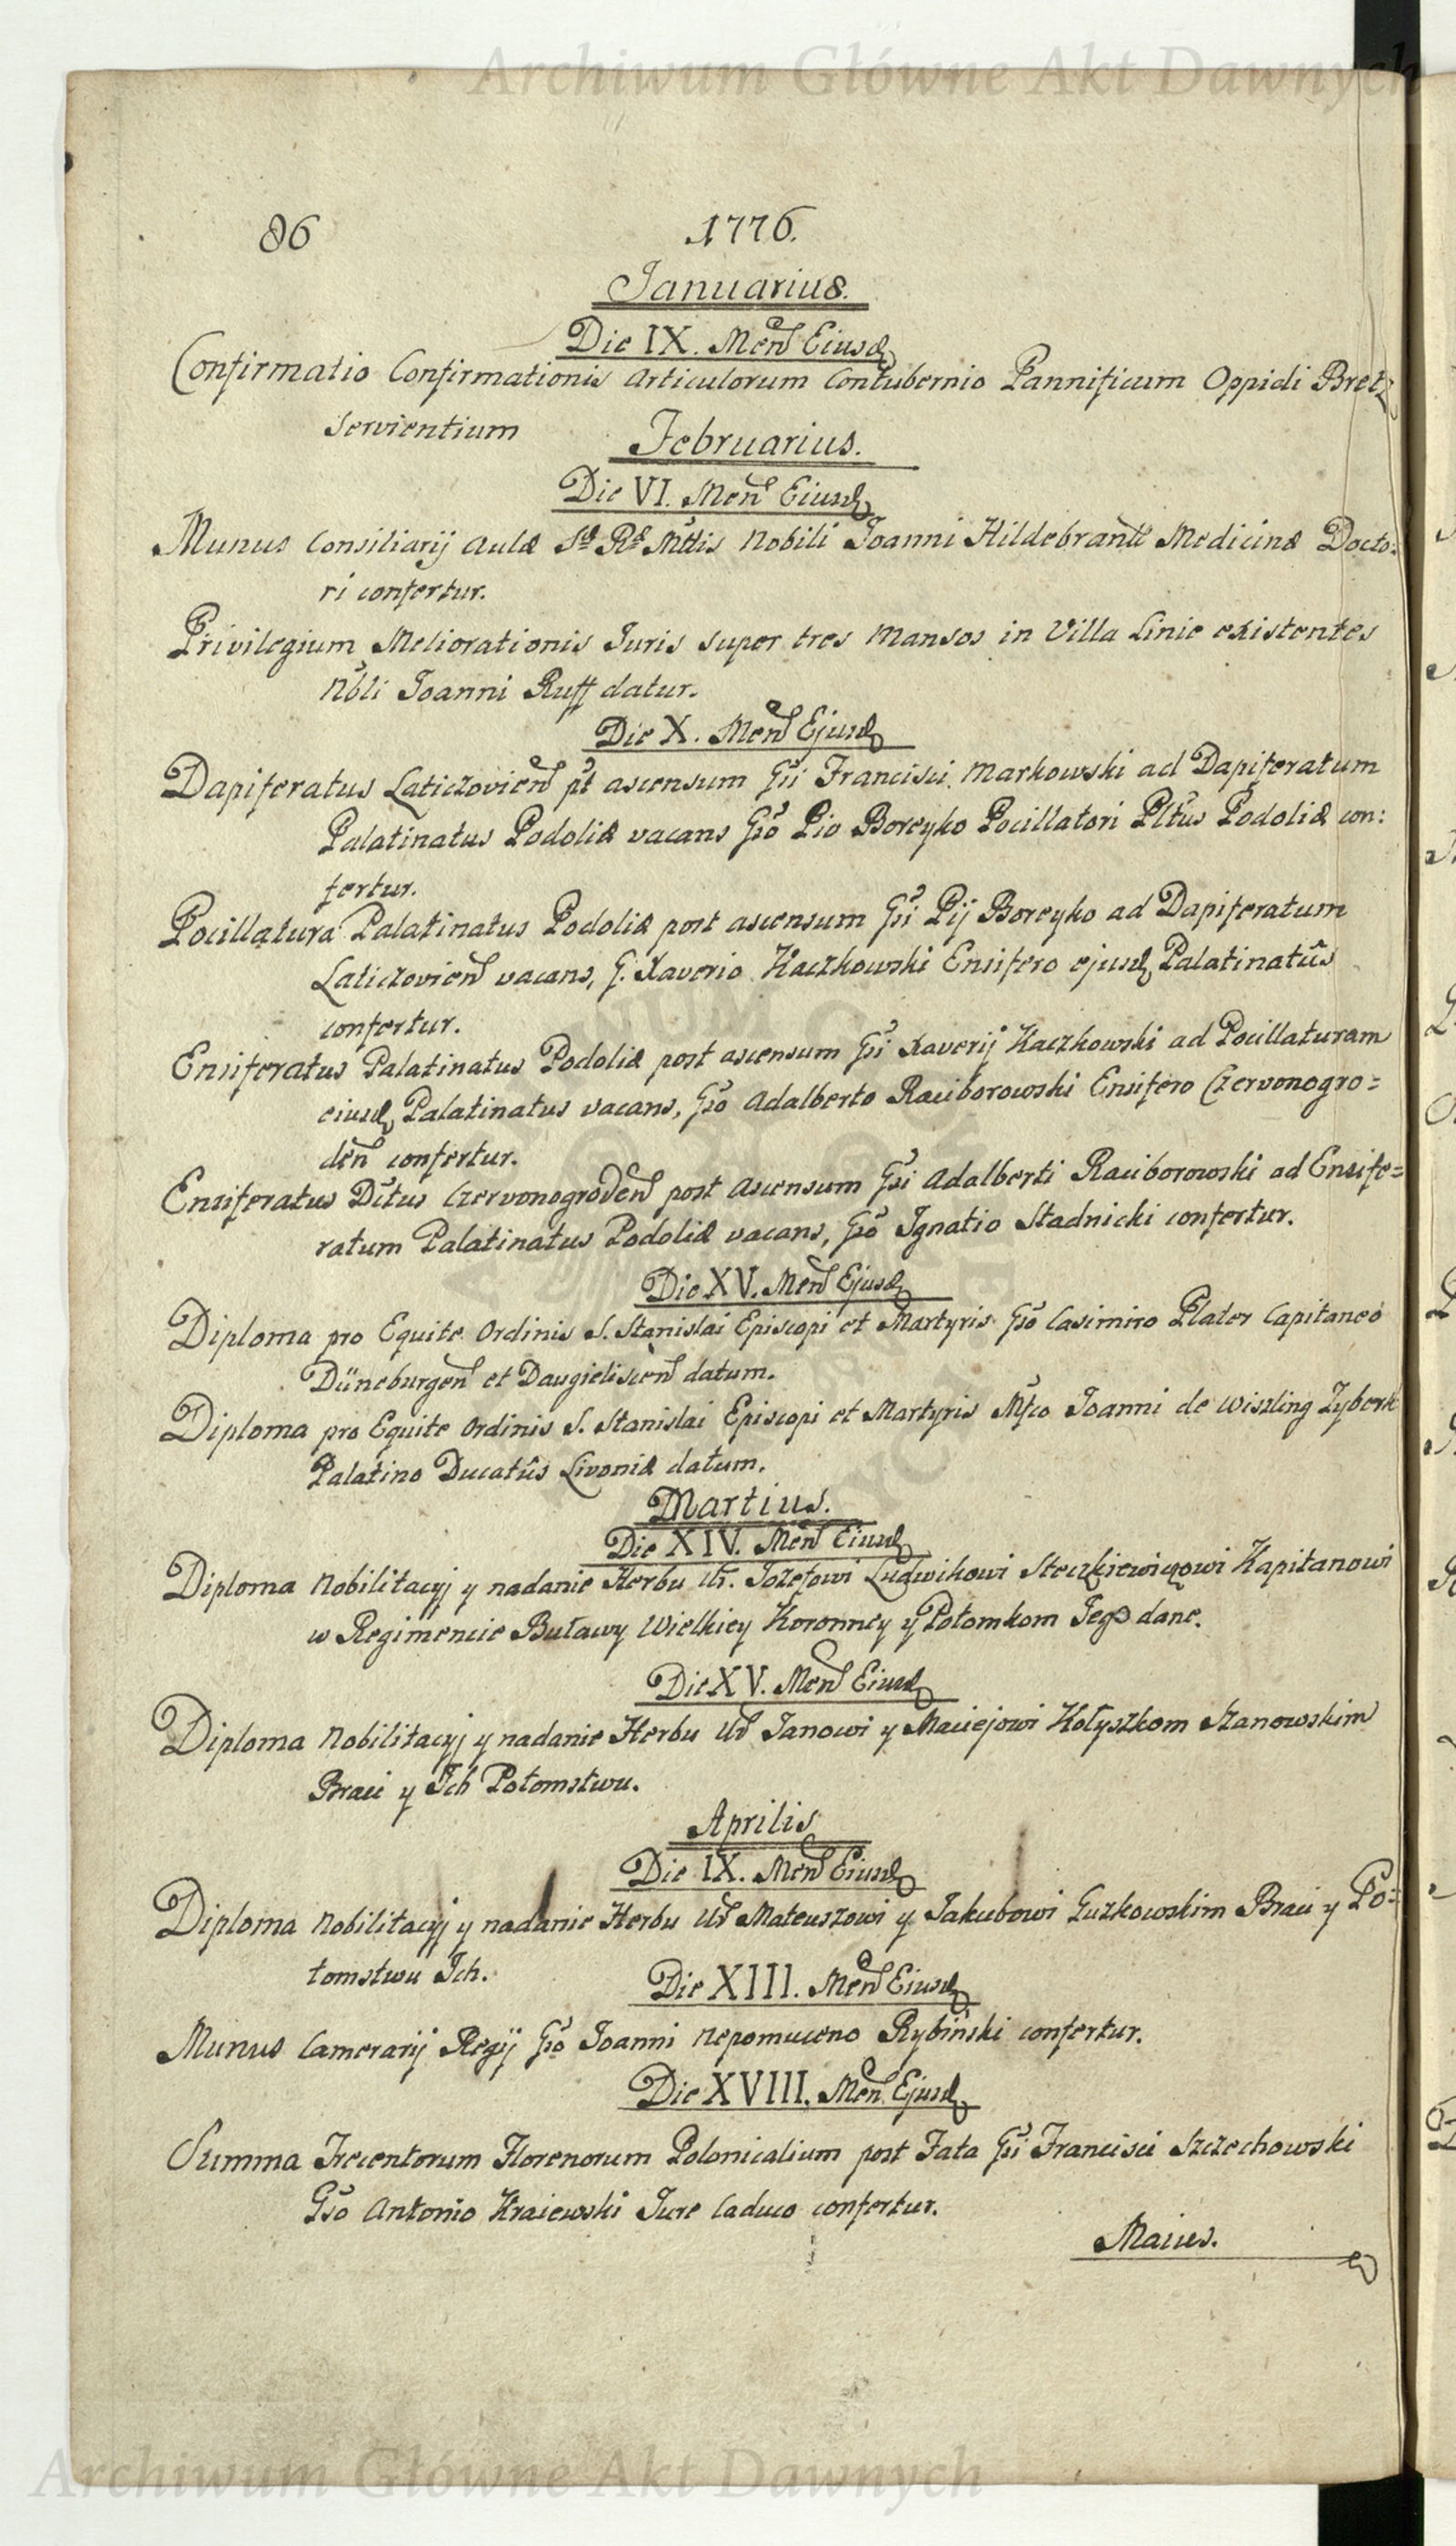 Archiwum Główne Akt Dawnych
86
1776.
Januarius.
Die IX. Men̄ Eiusd
Confirmatio Confirmationis Articulorum Contubernio Pannificum Oppidi Bretz
servientium
Februarius.
Die VI. Men̄ Eiusd
Munus Consiliarij Aulæ Sæ Ræ Mttis Nobili Joanni Hildebrandt Medicinæ Docto:
ri confertur.
Privilegium Meliorationis Juris super tres Mansos in Villa Linie existentes
Nbli Joanni Ruff datur.
Die X. Men̄ Ejusd
Dapiferatus Laticzovien̄ pt ascensum Gsi Francisci Markowski ad Dapiferatum
Palatinatus Podoliæ vacans Gso Pio Boreyko Pocillatori Pltus Podoliæ con:
fertur.
Pocillatura Palatinatus Podoliæ post ascensum Gsi Pij Boreyko ad Dapiferatum
Laticzovien̄ vacans, G. Xaverio Kaczkowski Ensifero ejusd Palatinatûs
confertur.
Ensiferatus Palatinatus Podoliæ post ascensum Gsi Xaverij Kaczkowski ad Pocillaturam
eiusd Palatinatus vacans, Gso Adalberto Raciborowski Ensifero Czervonogro=
den̄ confertur.
Ensiferatus Dttus Czervonogroden̄ post Ascensum Gsi Adalberti Raciborowski ad Ensife=
ratum Palatinatus Podoliæ vacans, Gso Ignatio Stadnicki confertur.
Die XV. Men̄ Ejusd
Diploma pro Equite Ordinis S. Stanislai Episcopi et Martyris Gso Casimiro Plater Capitaneo
Düneburgen̄ et Daugieliscen̄ datum.
Diploma pro Equite Ordinis S. Stanislai Episcopi et Martyris Mfco Joanni de Wiszling Zyberk
Palatino Ducatûs Livoniæ datum.
Martius.
Die XIV. Men̄ Eiusd
Diploma Nobilitacyj y nadanie Herbu Ur. Jozefowi Ludwikowi Steczkiewiczowi Kapitanowi
w Regimencie Buławy Wielkiey Koronney y Potomkom Jego dane.
Die XV. Men̄ Eiusd
Diploma Nobilitacyj y nadanie Herbu Ur Janowi y Maciejowi Kołyszkom Szanowskim
Braci y Ich Potomstwu.
Aprilis
Die IX. Men̄ Eiusd
Diploma Nobilitacyj y nadanie Herbu Ur Mateuszowi y Jakubowi Guzkowskim Braci y Po=
tomstwu Ich.
Die XIII. Men̄ Eiusd
Munus Camerarij Regij Gso Joanni Nepomuceno Rybiński confertur.
Die XVIII. Men̄ Ejusd
Summa Trecentorum Florenorum Polonicalium post Fata Gsi Francisci Szczechowski
Gso Antonio Kraiewski Jure Caduco confertur.
Maius.
Archiwum Główne Akt Dawnych